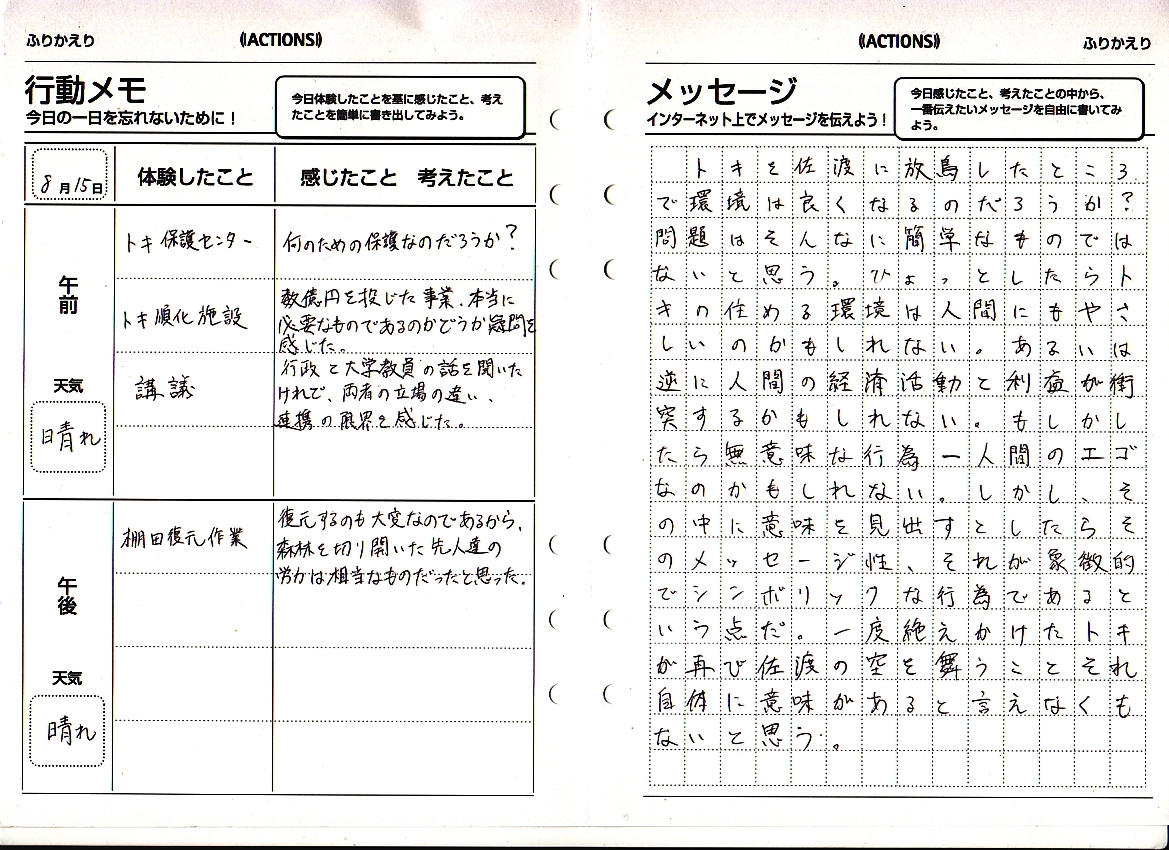 ふりかえり
((ACTIONS))
行動メモ
今日の一日を忘れないために!
今日体験したことを基に感じたこと、考え
たことを簡単に書き出してみよう。
8月15日
体験したこと
感じたこと 考えたこと
午前
トキ保護センター
何のための保護なのだろうか?
トキ順化施設
数億円を投じた事業、本当に
必要なものであるのかどうか疑問を
感じた。
講議
行政と大学教員の話を聞いた
けれど、両者の立場の違い、
連携の限界を感じた。
天気
晴れ
午後
棚田復元作業
復元するのも大変なのであるから、
森林を切り開いた先人達の
労力は相当なものだったと思った。
天気
晴れ
((ACTIONS))
ふりかえり
メッセージ
インターネット上でメッセージを伝えよう!
今日感じたこと、考えたことの中から、
一番伝えたいメッセージを自由に書いてみ
よう。
トキを佐渡に放鳥したところ
で環境は良くなるのだろうか?
問題はそんなに簡単なものでは
ないと思う。ひょっとしたらト
キの住める環境は人間にもやさ
しいのかもしれない。あるいは
逆に人間の経済活動と利益が衝
突するかもしれない。もしかし
たら無意味な行為―人間のエゴ
なのかもしれない。しかし、そ
の中に意味を見出すとしたらそ
のメッセージ性、それが象徴的
でシンボリックな行為であると
いう点だ。一度絶えかけたトキ
が再び佐渡の空を舞うことそれ
自体に意味があると言えなくも
ないと思う。